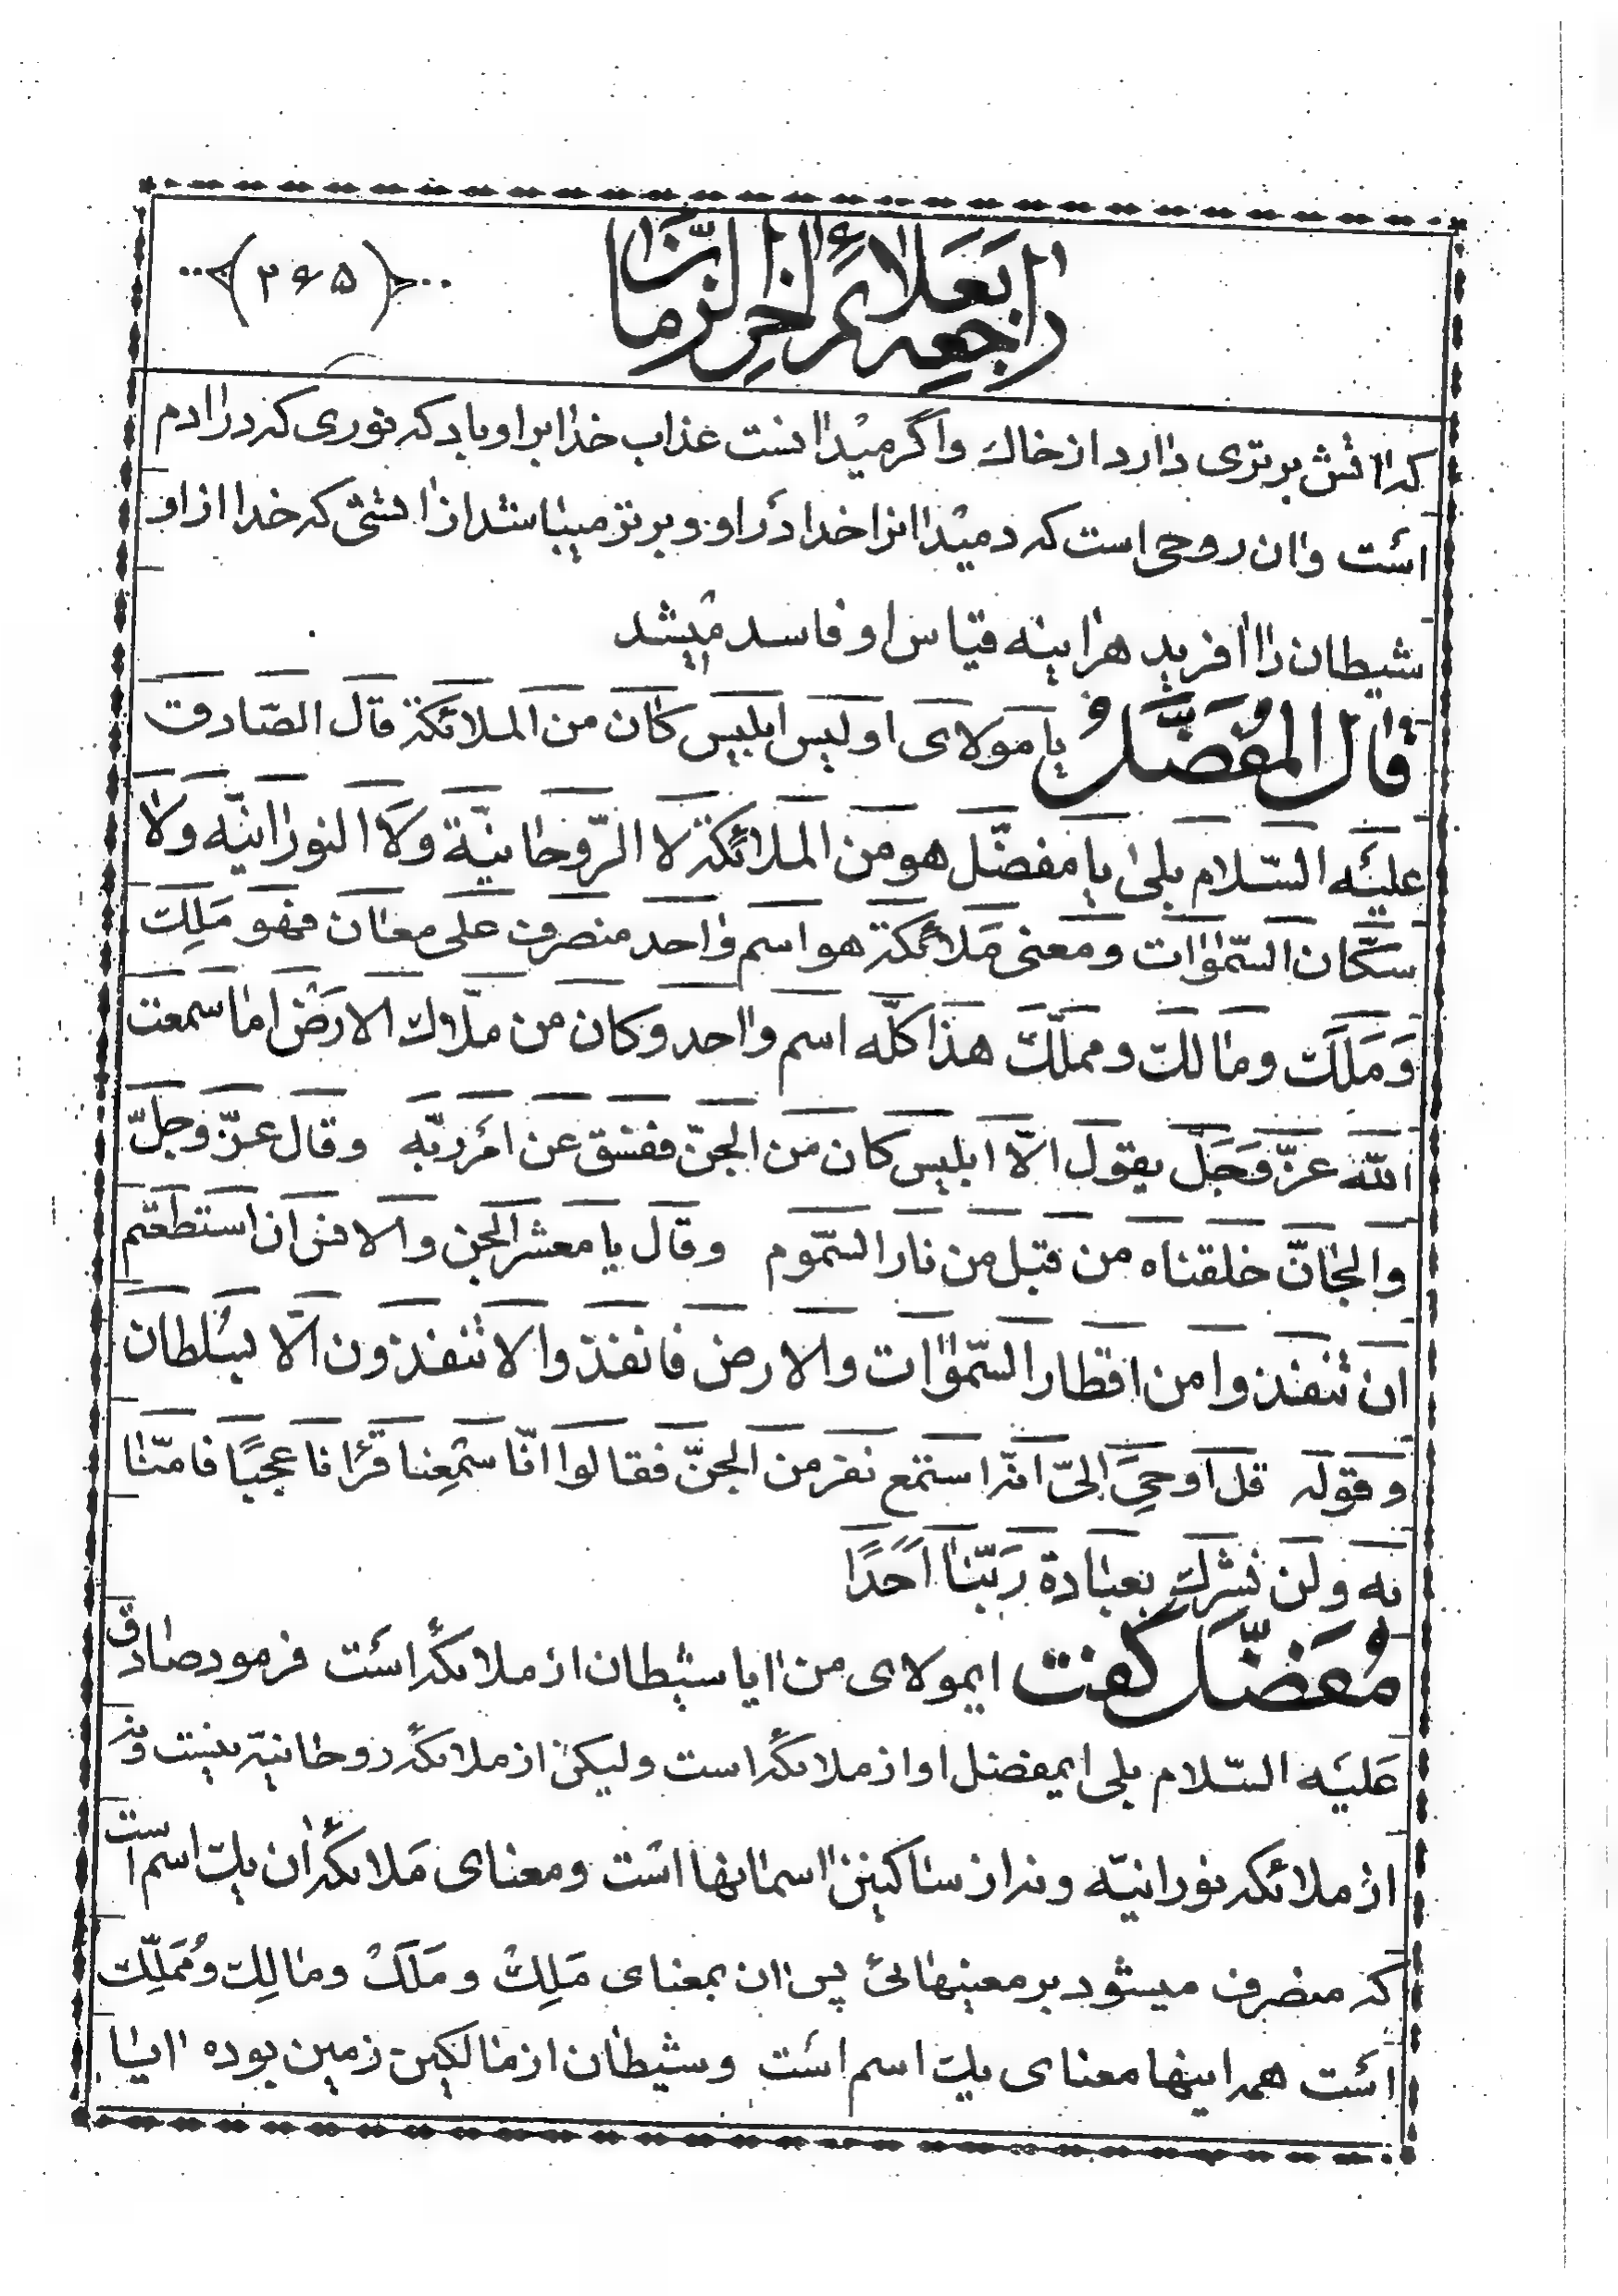 راجعه بعلائم اخر الزمان
(۲۶۵)
که اتش برتری دارد از خاك واگر میدانست عذاب خدا بر او باد که نوری که در ادم
است وان روحی است که دمید انرا خدا در او و برتر میباشد از اتشی که خدا از او
شیطان را افرید هراینه قیاس او فاسد میشد
قال المُفَضَّلُ یا مولای اولیس ابلیس کان من الملائکة قال الصّادق
علیَه السّلام بلی یا مفضّل هو من الملائکة لا الرّوحانیّة وَلَا النورانیّه وَلا
سکّان السّمٰوات ومعنی مَلائکة هو اسم واحد منصرف علی معان فهو مَلِك
وَمَلَك ومالك ومملّك هذا کلّه اسم واحد وکان من ملّاك الارض اما سمعت
اللّه عزّ وَجَلّ یقول الّا ابلیس کان من الجنّ ففسق عن امر ربّه وقال عزّ وجلّ
والجٰانّ خلقناه من قبل من نار السّموم وقال یا معشر الجن والانس ان استطعتم
ان تنفذوا من اقطار السّمٰوات والارض فانفذوا لا تنفذون الّا بسُلطان
وقوله قل اوحِیَ الیّ انّه استمع نفر من الجنّ فقالوا انّا سَمِعنا قُرانا عجبًا فامنّا
به ولن نشرك بعبادة رَبّنا اَحَدًا
مُفَضَّل گفت ایمولای من ایا شیطان از ملائکه است فرمود صادق
عَلیَه السّلام بلی ایمفضل او از ملائکه است ولیکن از ملائکه روحانیّه نیست ونه
از ملائکه نورانیّه ونه از ساکنین اسمانها است ومعنای مَلائکه ان یك اسم است
که منصرف میشود بر معنیهائی پس ان بمعنای مَلِك و مَلَك ومالِك ومُمَلّك
است همه اینها معنای یك اسم است وشیطان از مالکین زمین بوده ایا